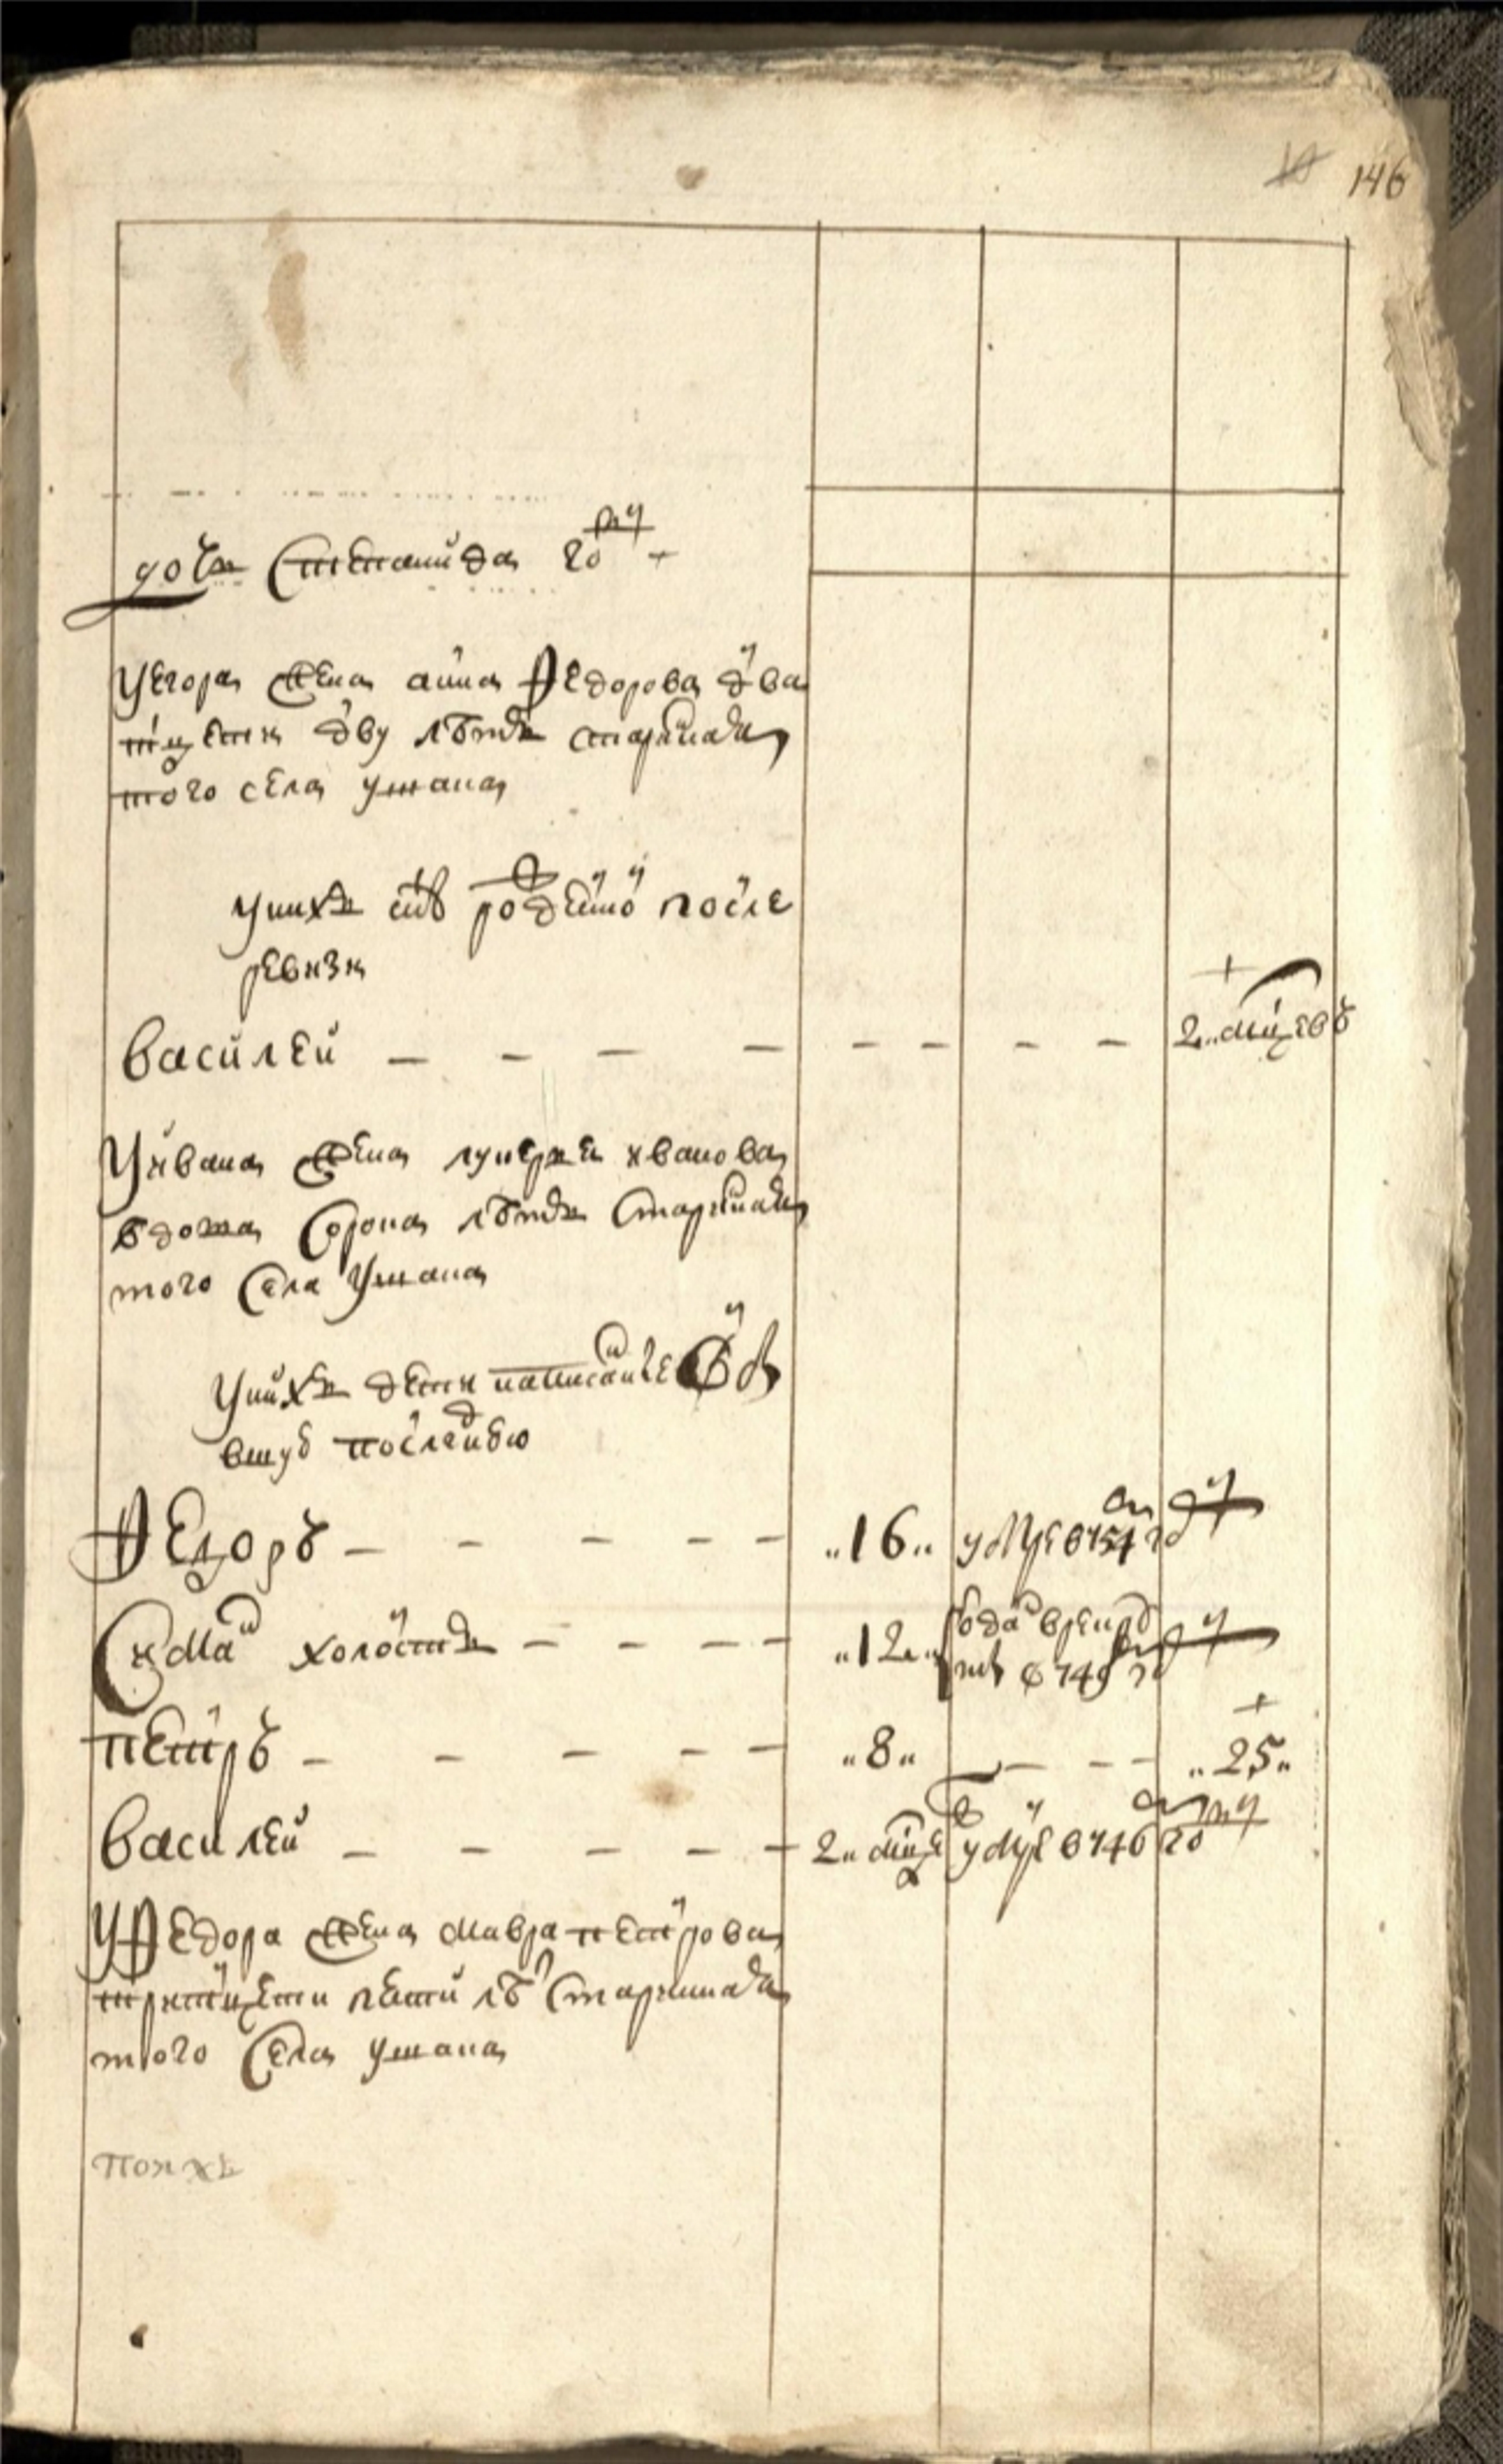 146
дочь Степанида году
У Егора жена анна Федорова два
тцети дву летъ старинная
того села ужана
у нихъ снъ рожденой после
ревизи
Василей — — — — — — — — 2 мцевъ
У ивана жена лукерья иванова
вдова Сорока летъ Старинная
того Села Ужана
У нихъ дети написанные въ
въ ту последнюю
Федоръ — — — — — „16„ умре в 754 году
Сима холостъ — — — — „12„ отданъ в рекру
ты в 749 году
петръ — — — — — „8„ — — — „25„
Василей — — — — — 2 мце умре в 746 году
У Федора жена Мавра петрова
тритцети пети летъ Старинная
того Села ужана
по ихъ